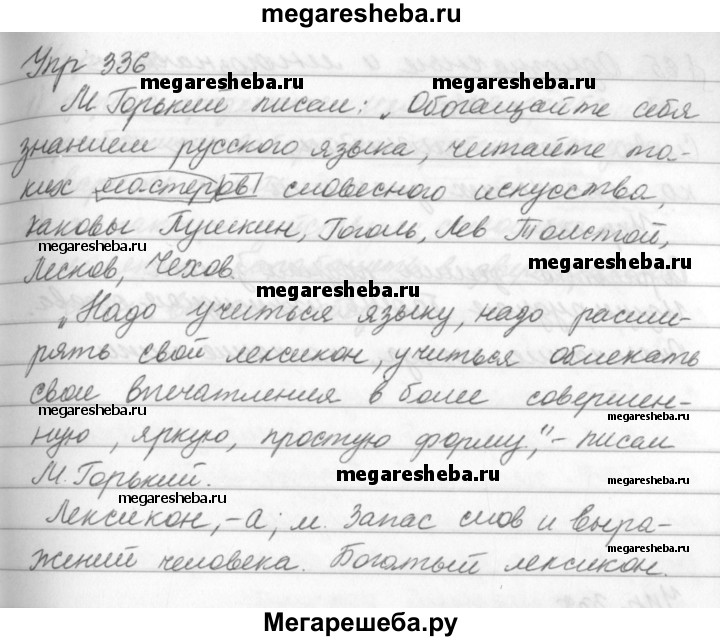 megaresheba.ru
Упр 336
megaresheba.ru megaresheba.ru
М. Горький писал: „Обогащайте себя
знанием русского языка, читайте та-
ких мастеров словесного искусства,
каковы Пушкин, Гоголь, Лев Толстой,
megaresheba.ru megaresheba.ru
Лесков, Чехов.
megaresheba.ru
„Надо учиться языку, надо расши-
рять свой лексикон, учиться облекать
свои впечатления в более совершен-
megaresheba.ru megaresheba.ru
ную, яркую, простую форму," – писал
М. Горький.
megaresheba.ru
megaresheba.ru
Лексикон, -а; м. Запас слов и выра-
жений человека. Богатый лексикон.
megaresheba.ru
Мегарешеба.ру